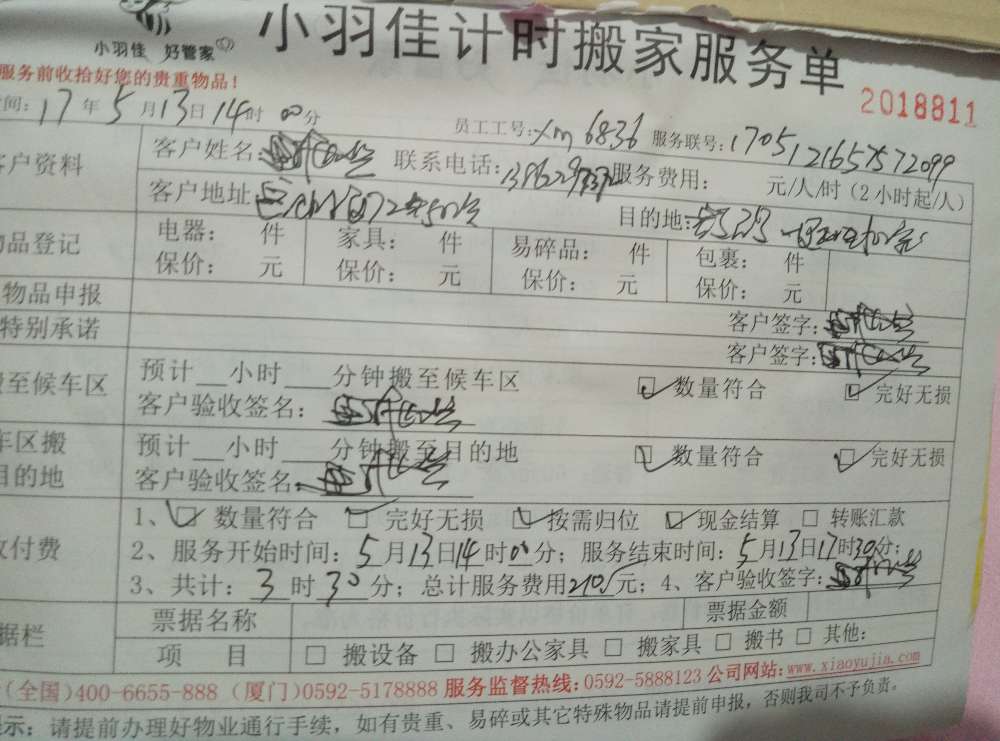 小羽佳 好管家
小羽佳计时搬家服务单
服务前收拾好您的贵重物品！
2018811
间: 17 年 5 月 13 日 14 时 00 分 员工工号: xm 6836 服务联号: 1705121657572099
客户资料 客户姓名: 联系电话: 服务费用: 元/人/时（2小时起/人）
客户地址: 目的地:
物品登记 电器: 件 家具: 件 易碎品: 件 包裹: 件
保价: 元 保价: 元 保价: 元 保价: 元
物品申报 客户签字:
特别承诺 客户签字:
搬至候车区 预计___小时___分钟搬至候车区 ☑ 数量符合 ☑ 完好无损
客户验收签名:
车区搬 预计___小时___分钟搬至目的地 ☑ 数量符合 ☑ 完好无损
目的地 客户验收签名:
1、☑ 数量符合 ☑ 完好无损 ☑ 按需归位 ☑ 现金结算 □ 转账汇款
收付费 2、服务开始时间: 5 月 13 日 14 时 00 分；服务结束时间: 5 月 13 日 17 时 30 分；
3、共计: 3 时 30 分；总计服务费用 210 元；4、客户验收签字:
据栏 票据名称 票据金额
项 目 □ 搬设备 □ 搬办公家具 □ 搬家具 □ 搬书 □ 其他:
(全国)400-6655-888 (厦门)0592-5178888 服务监督热线: 0592-5888123 公司网站: www.xiaoyujia.com
提示: 请提前办理好物业通行手续，如有贵重、易碎或其它特殊物品请提前申报，否则我司不予负责。